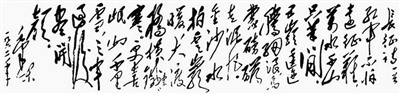 长征诗一首
红军不怕
远征难
万水千山
只等闲
五岭逶迤
腾细浪乌
蒙磅礴
走泥丸
金沙水
拍云崖
暖大渡
桥横铁索
寒更喜
岷山千里
雪三军
过后
尽开
颜
毛泽东